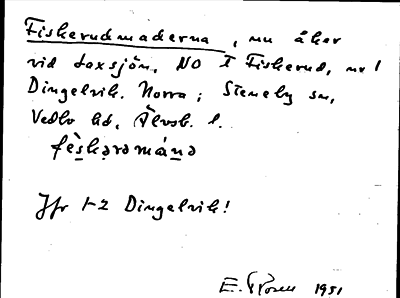 Fiskerudmaderna, nu åker
vid Laxsjön, NO I Fiskerud, nr 1
Dingelvik. Norra; Steneby sn,
Vedbo hd, Älvsb. l.
fèskərəmánə
Jfr 1-2 Dingelvik!
E. 1951